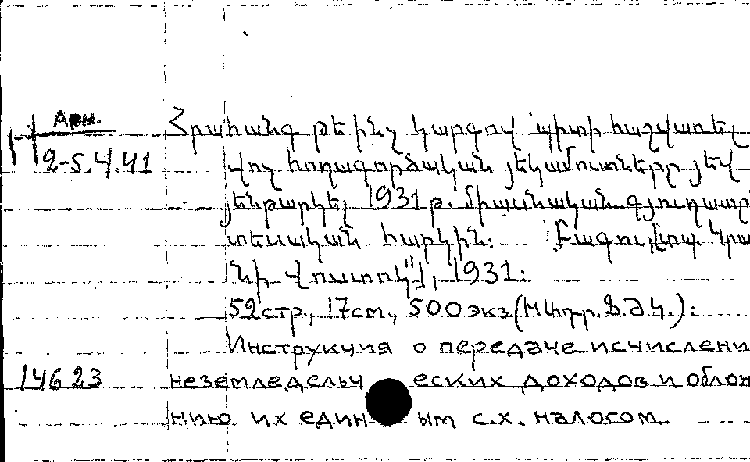 Арм.
Հրահանգ թե ինչ կարգով պիտի հաշվառել
2-5.4.41
վոչ հողագործական յեկամուտները յեվ
յենթարկել 1931 թ. միասնական գյուղատ
տեսական հարկին: Բագու,
վոստոկ", 1931:
52стр., 17см., 500экз.
Инструкция о передаче исчислени
14623
неземледельческих доходов и облож
нию их единым с.х. налогом.